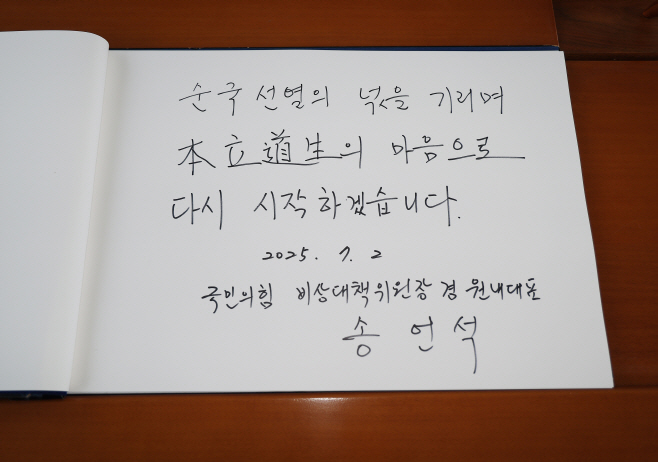 순국선열의 넋을 기리며
本立道生의 마음으로
다시 시작하겠습니다.
2025. 7. 2
국민의힘 비상대책위원장 겸 원내대표
송언석